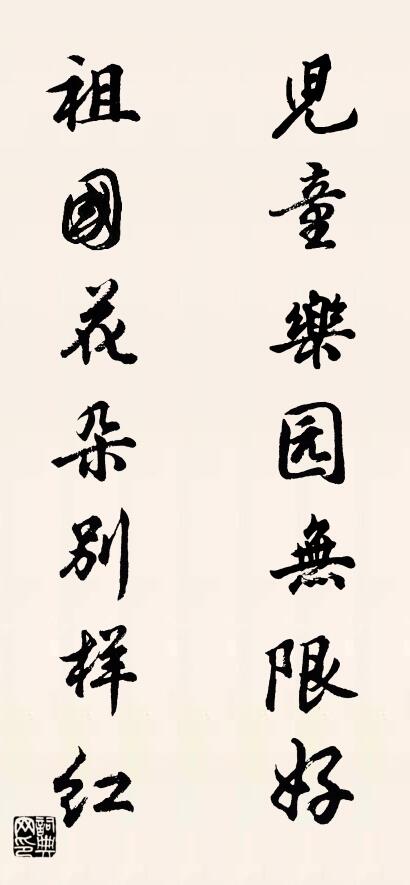 兒童樂园無限好
祖國花朵别样红
詞典网印